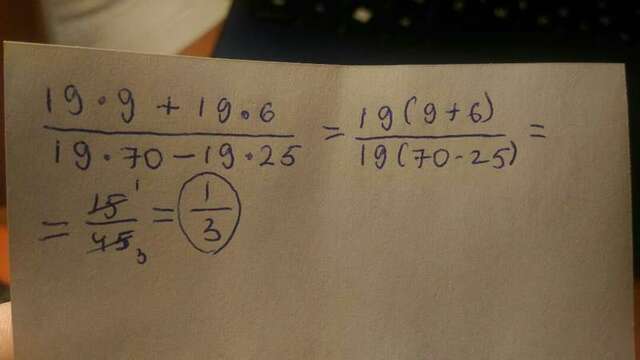 19·9 + 19·6 / 19·70 − 19·25 = 19(9+6) / 19(70-25) =
= 15 1 / 45 3 = 1 / 3